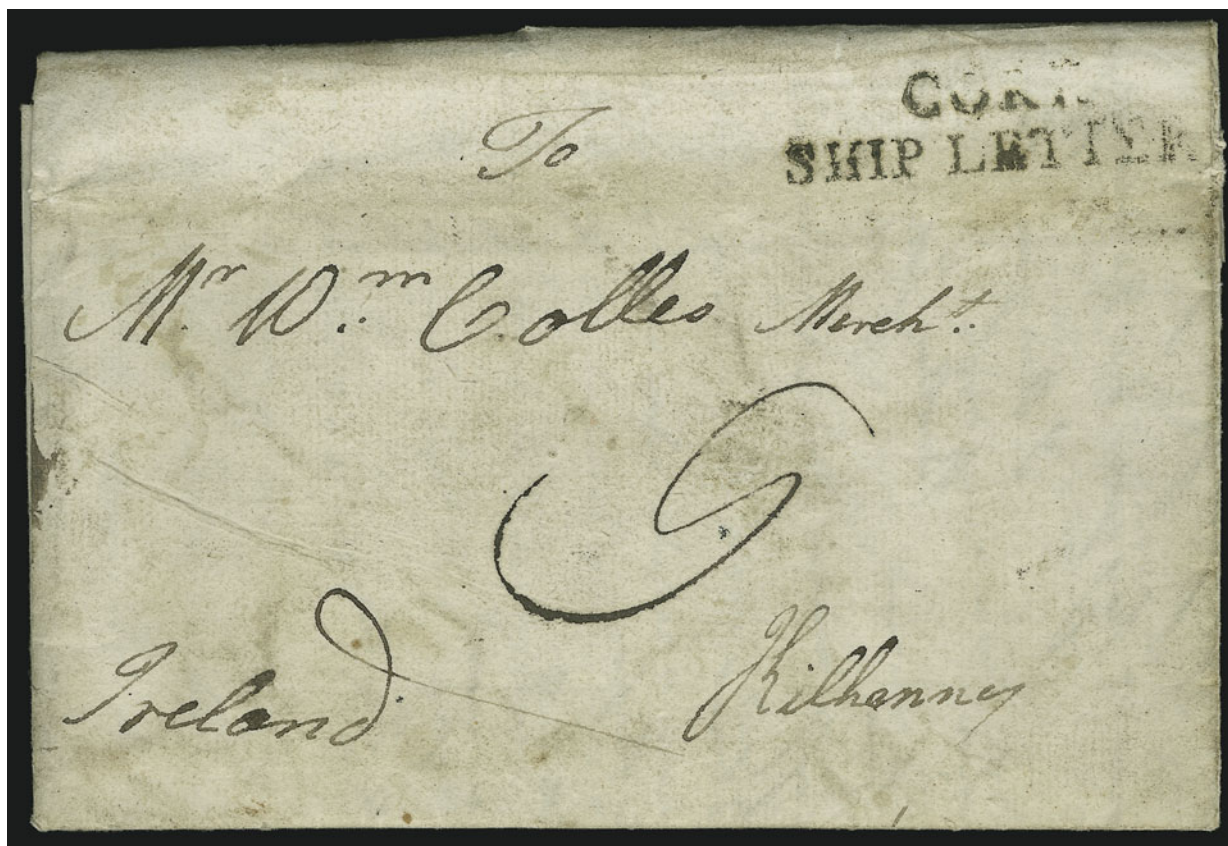 CORK
SHIP LETTER
To
Mr. Wm. Colles Mercht.
Ireland Kilkenney